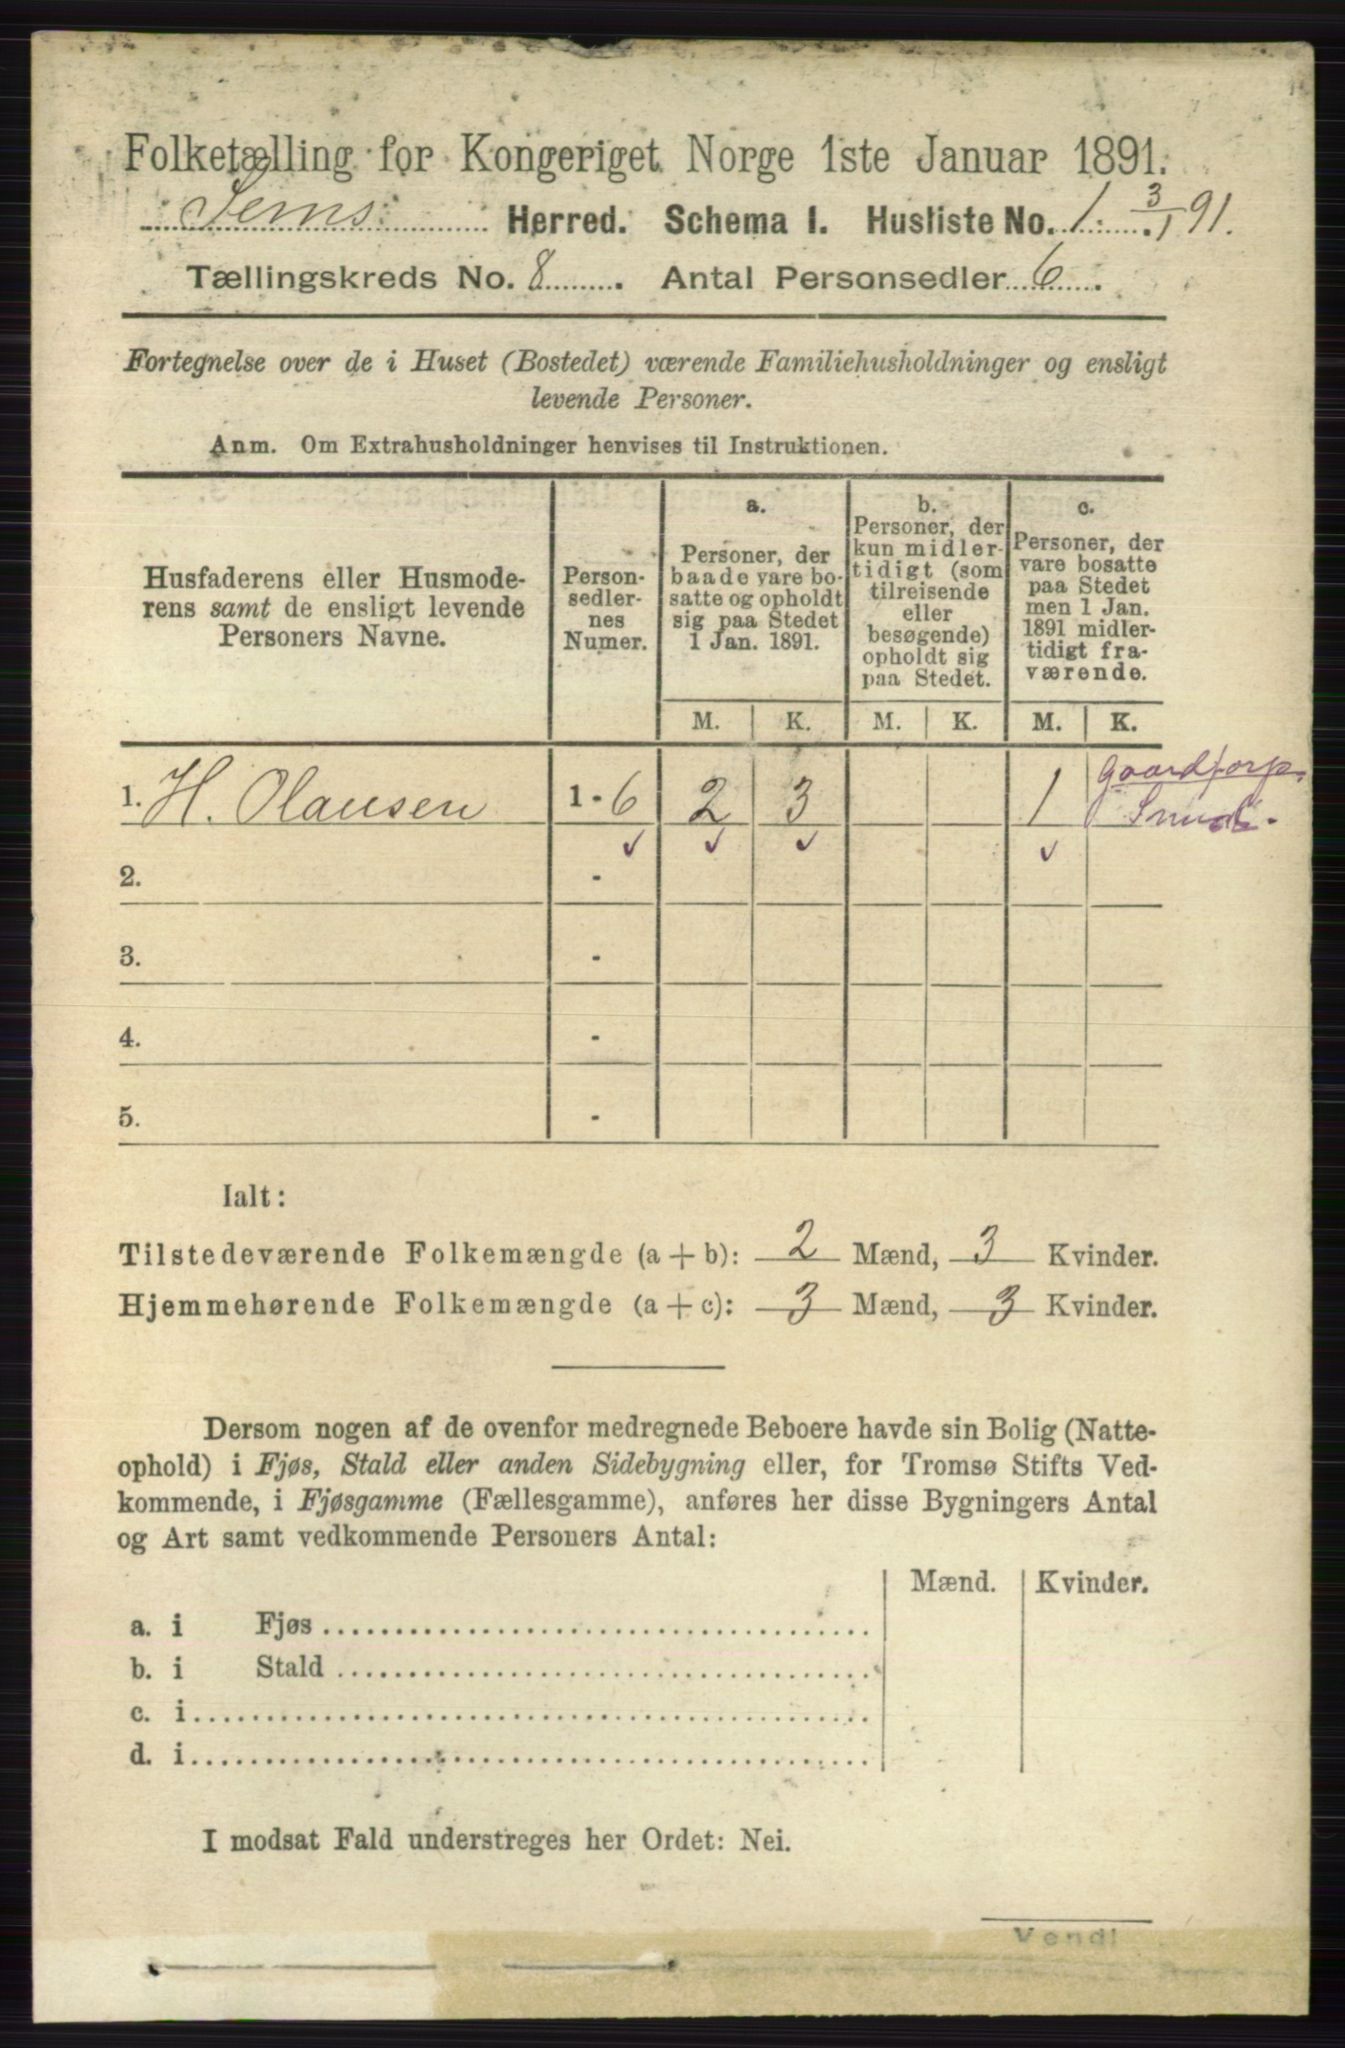 Folketælling for Kongeriget Norge 1ste Januar 1891.
Sems Herred. Schema I. Husliste No. 1. 3/1 91.
Tællingskreds No. 8. Antal Personsedler 6.
Fortegnelse over de i Huset (Bostedet) værende Familiehusholdninger og ensligt
levende Personer.
Anm. Om Extrahusholdninger henvises til Instruktionen.
Husfaderens eller Husmode-
rens samt de ensligt levende
Personers Navne.
Person-
sedler-
nes
Numer.
a.
Personer, der
baade vare bo-
satte og opholdt
sig paa Stedet
1 Jan. 1891.
b.
Personer, der
kun midler-
tidigt (som
tilreisende
eller
besøgende)
opholdt sig
paa Stedet.
c.
Personer, der
vare bosatte
paa Stedet
men 1 Jan.
1891 midler-
tidigt fra-
værende.
M. K. M. K. M. K.
1. H. Olausen 1 - 6 2 3 1
2. -
3. -
4. -
5. -
Ialt:
Tilstedeværende Folkemængde (a + b): 2 Mænd, 3 Kvinder.
Hjemmehørende Folkemængde (a + c): 3 Mænd, 3 Kvinder.
Dersom nogen af de ovenfor medregnede Beboere havde sin Bolig (Natte-
ophold) i Fjøs, Stald eller anden Sidebygning eller, for Tromsø Stifts Ved-
kommende, i Fjøsgamme (Fællesgamme), anføres her disse Bygningers Antal
og Art samt vedkommende Personers Antal:
Mænd. Kvinder.
a. i Fjøs
b. i Stald
c. i
d. i
I modsat Fald understreges her Ordet: Nei.
Vend!